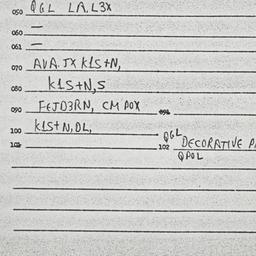 050 QGL LA, L3X
060 —
061 —
070 AVA. JX K1S+N,
080 K1S+N,S
090 FEJD3RN, CM POX
091
100 K1S+N, DL,
QGL
102 DECORATIVE P
QPOL